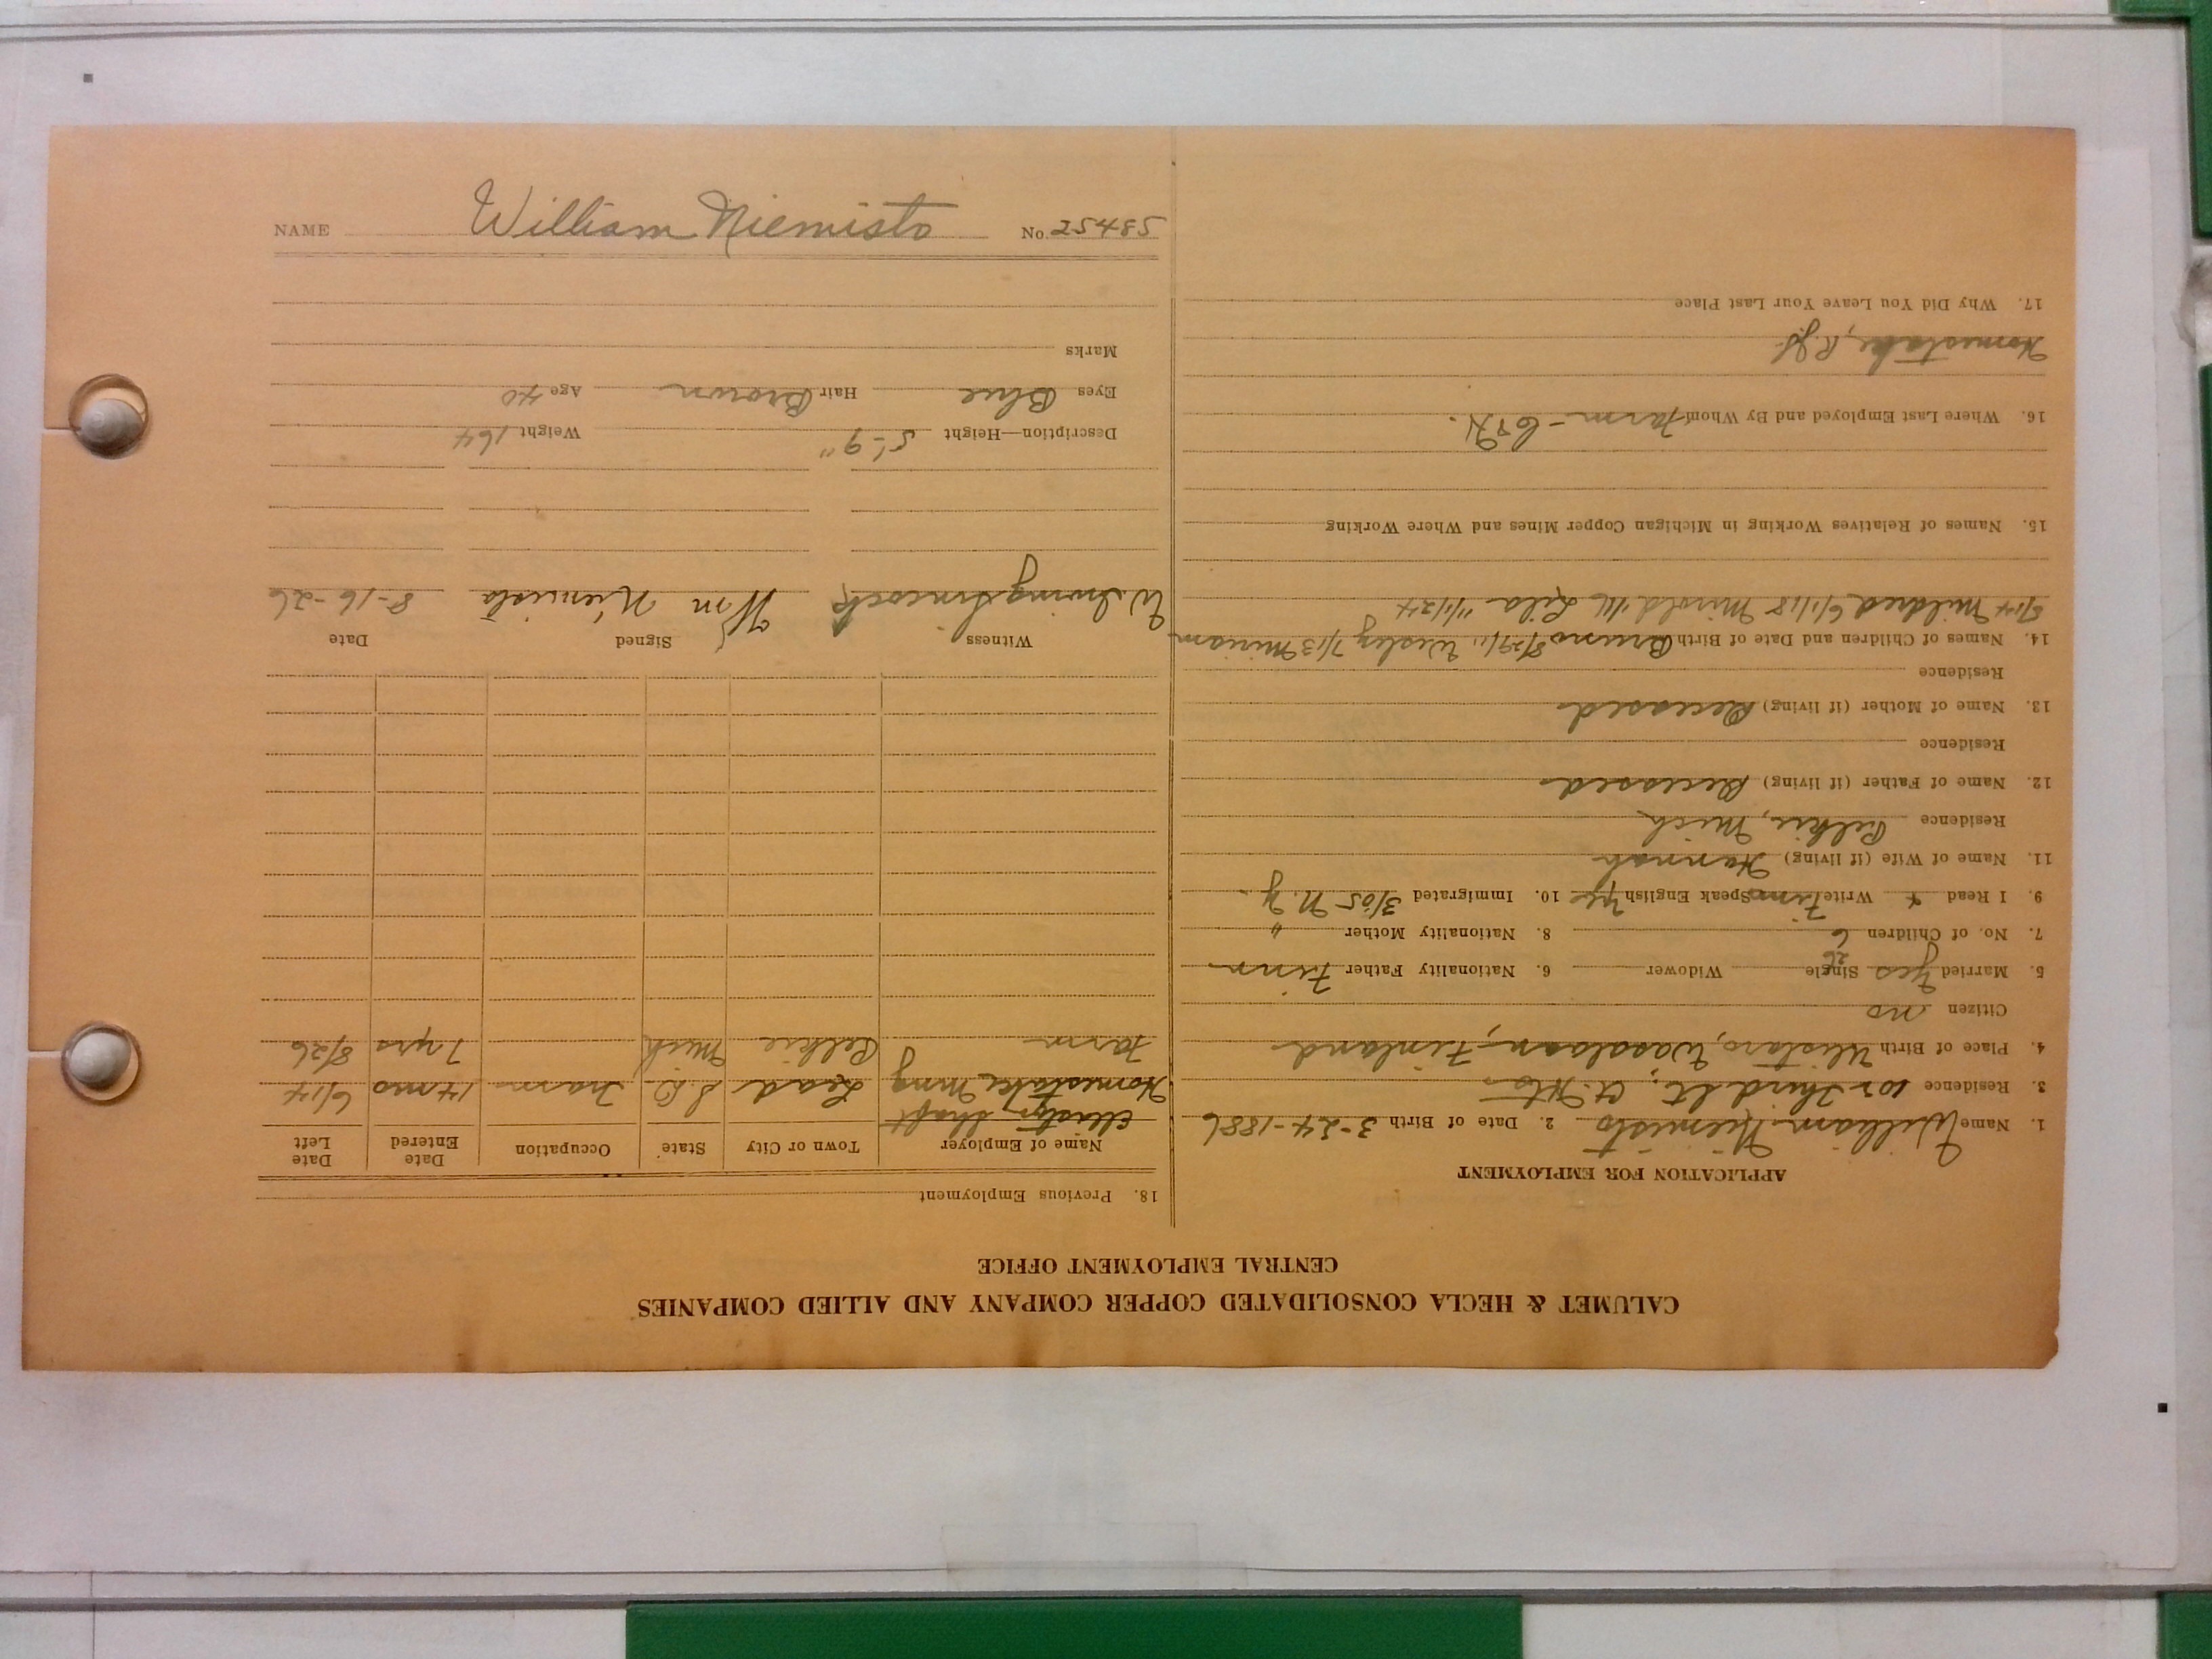 NAME William Niemisto No. 25485
CALUMET & HECLA CONSOLIDATED COPPER COMPANY AND ALLIED COMPANIES
CENTRAL EMPLOYMENT OFFICE
APPLICATION FOR EMPLOYMENT
1. Name William Niemisto 2. Date of Birth 3-24-1886
3. Residence 102 Third St,
4. Place of Birth Wasalaan, Finland
Citizen no
5. Married Yes 26 Single Widower 6. Nationality Father Finn
7. No. of Children 6 8. Nationality Mother "
9. I Read + Write Finn Speak English Yes 10. Immigrated 3/05 N.Y.
11. Name of Wife (if living) Hannah
Residence Pelkie, Mich
12. Name of Father (if living) Deceased
Residence
13. Name of Mother (if living) Deceased
Residence
14. Names of Children and Date of Birth Bruno 8/29/11 Wesley 7/13 Miriam
8/14 Mildred 6/1/18 Lila 11/1/24
15. Names of Relatives Working in Michigan Copper Mines and Where Working
16. Where Last Employed and By Whom Farm - C&H.
Homestake,
17. Why Did You Leave Your Last Place
18. Previous Employment
Name of Employer Town or City State Occupation Date Entered Date Left
Shaft
Homestake Mng Lead S.D. Tram 14 mos 6/14
Farm Pelkie Mich 7 yrs 8/26
Witness Signed Date
W. Irving Sincock Wm Niemisto 8-16-26
Description—Height 5'-9" Weight 164
Eyes Blue Hair Brown Age 40
Marks